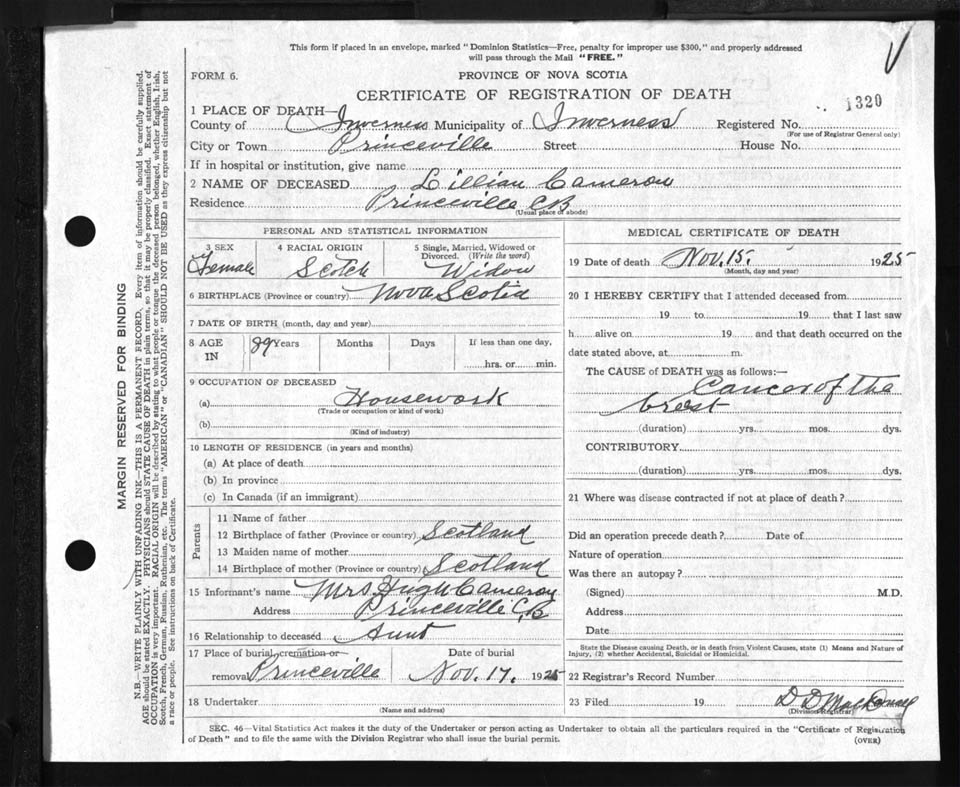 This form if placed in an envelope, marked "Dominion Statistics—Free, penalty for improper use $300," and properly addressed
will pass through the Mail "FREE."
FORM 6.
PROVINCE OF NOVA SCOTIA
CERTIFICATE OF REGISTRATION OF DEATH
1320
1 PLACE OF DEATH—
County of Inverness Municipality of Inverness Registered No.
(For use of Registrar General only)
City or Town Princeville Street House No.
If in hospital or institution, give name
2 NAME OF DECEASED Lillian Cameron
Residence Princeville C.B
(Usual place of abode)
PERSONAL AND STATISTICAL INFORMATION
3 SEX 4 RACIAL ORIGIN 5 Single, Married, Widowed or
Divorced. (Write the word)
Female Scotch Widow
6 BIRTHPLACE (Province or country) Nova Scotia
7 DATE OF BIRTH (month, day and year)
8 AGE IN 89 Years Months Days If less than one day,
hrs. or min.
9 OCCUPATION OF DECEASED
(a) Housework
(Trade or occupation or kind of work)
(b)
(Kind of industry)
10 LENGTH OF RESIDENCE (in years and months)
(a) At place of death
(b) In province
(c) In Canada (if an immigrant)
Parents
11 Name of father
12 Birthplace of father (Province or country) Scotland
13 Maiden name of mother
14 Birthplace of mother (Province or country) Scotland
15 Informant's name Mrs. Hugh Cameron
Address Princeville C,B
16 Relationship to deceased Aunt
17 Place of burial, cremation or Date of burial
removal Princeville Nov. 17. 1925
18 Undertaker
(Name and address)
MEDICAL CERTIFICATE OF DEATH
19 Date of death Nov. 15. 1925
(Month, day and year)
20 I HEREBY CERTIFY that I attended deceased from
19 to 19 that I last saw
h alive on 19 and that death occurred on the
date stated above, at m.
The CAUSE of DEATH was as follows:—
Cancer of the
brest
(duration) yrs. mos. dys.
CONTRIBUTORY
(duration) yrs. mos. dys.
21 Where was disease contracted if not at place of death?
Did an operation precede death? Date of
Nature of operation
Was there an autopsy?
(Signed) M.D.
Address
Date
State the Disease causing Death, or in death from Violent Causes, state (1) Means and Nature of
Injury, (2) whether Accidental, Suicidal or Homicidal.
22 Registrar's Record Number
23 Filed 19 D D MacDonald
(Division Registrar)
SEC. 46—Vital Statistics Act makes it the duty of the Undertaker or person acting as Undertaker to obtain all the particulars required in the "Certificate of Registration
of Death" and to file the same with the Division Registrar who shall issue the burial permit.
(OVER)
MARGIN RESERVED FOR BINDING
N.B.—WRITE PLAINLY WITH UNFADING INK—THIS IS A PERMANENT RECORD. Every item of information should be carefully supplied.
AGE should be stated EXACTLY. PHYSICIANS should STATE CAUSE OF DEATH in plain terms, so that it may be properly classified. Exact statement of
OCCUPATION is very important. RACIAL ORIGIN will be described by stating to what people or tongue the deceased person belonged, whether English, Irish,
Scotch, French, German, Russian, Ruthenian, etc. The terms "AMERICAN" or "CANADIAN" SHOULD NOT BE USED as they express citizenship but not
a race or people. See instructions on back of Certificate.